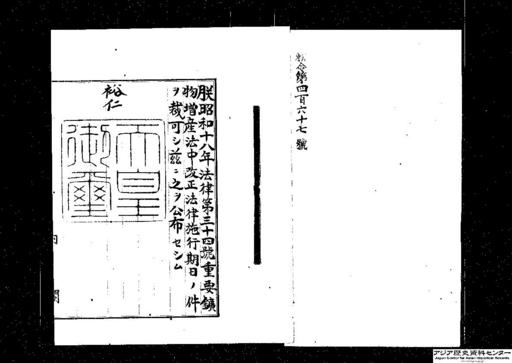 勅令第四百六十七號
朕昭和十八年法律第三十四號重要鑛
物增産法中改正法律施行期日ノ件
ヲ裁可シ茲ニ之ヲ公布セシム
裕仁
天皇
御璽
内閣
アジア歴史資料センター
Japan Center for Asian Historical Records